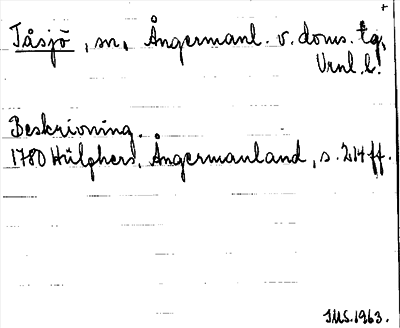 Tåsjö, sn, Ångermanl. v. doms. tg,
Vrnl. l.
Beskrivning.
1780 Hülphers, Ångermanland, s. 214 ff.
IMS. 1963.